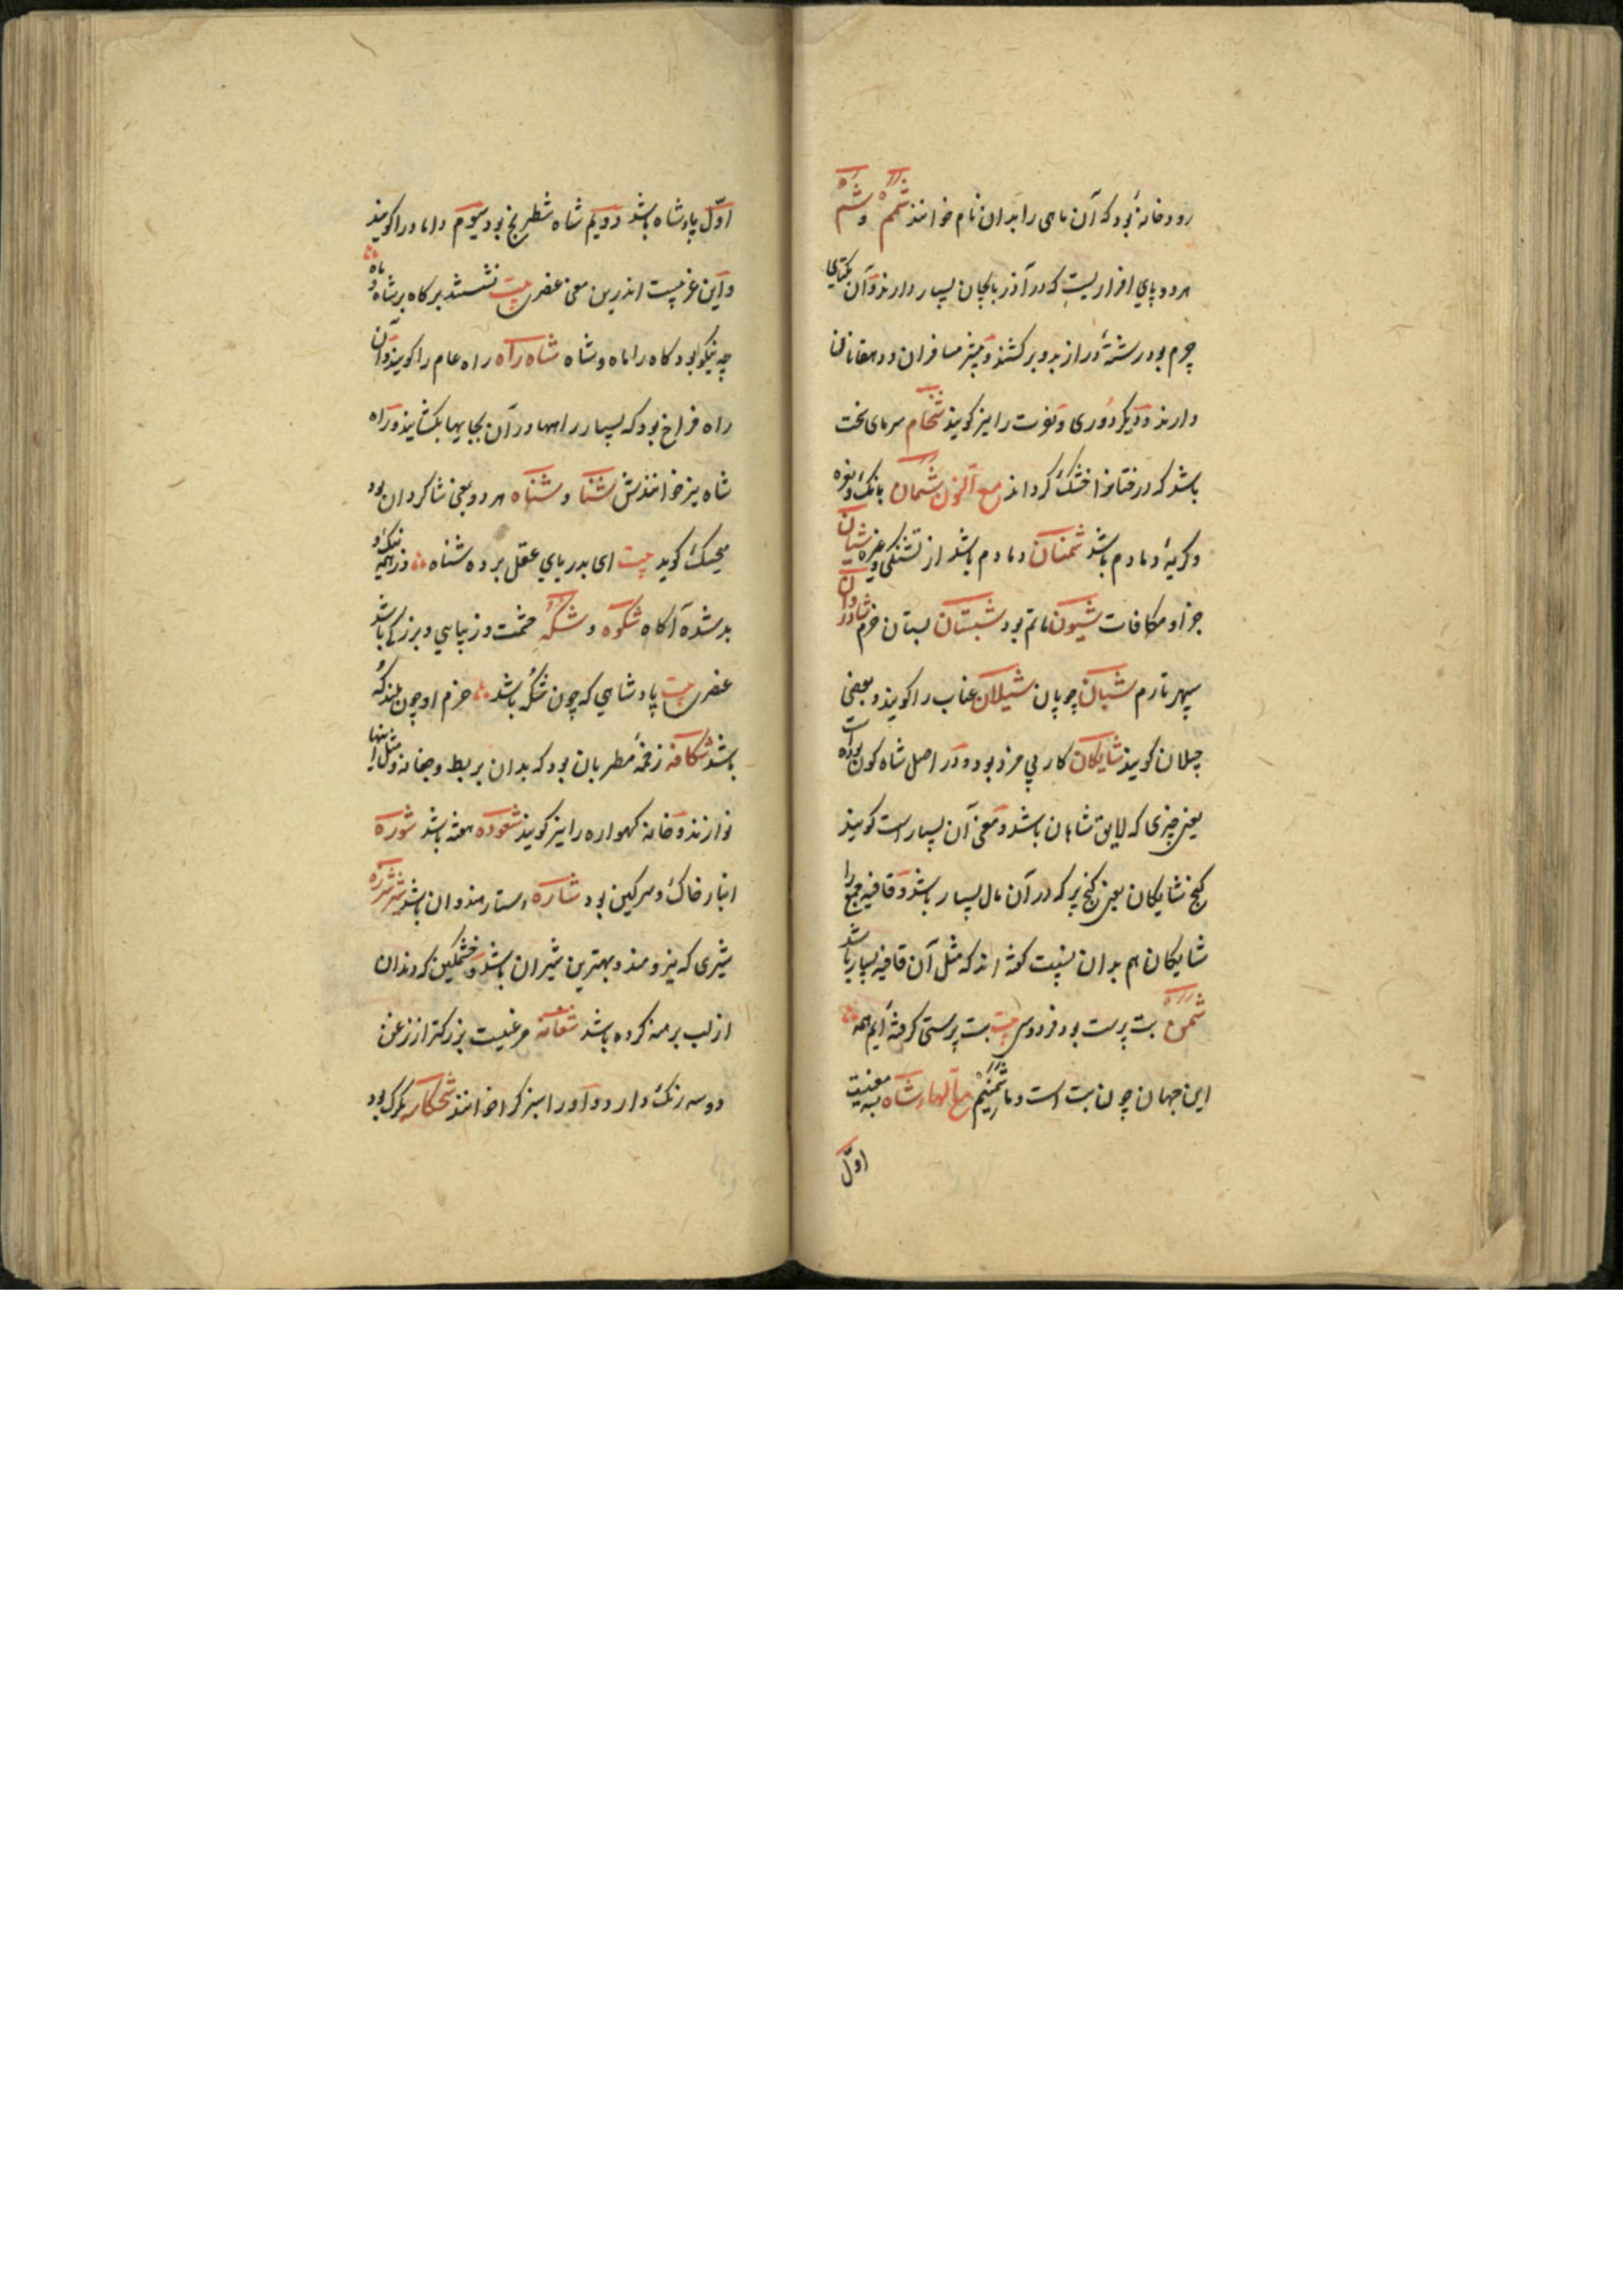 رودخانهٔ بود که آن ماهی را بدان نام خوانند شمم و شم
هر دو پای افزاریست که در آذربایجان بسیار دارند و آن یکتای
چرم بود رشتهٔ دراز بدو برکشند و بیشتر مسافران و دهقانان
دارند و دیگر دوری و نفرت را نیز گویند شجام سرمای سخت
باشد که درختانرا خشک گرداند مع النون شمان بانک و نفره
و گریهٔ دمادم باشد شمنان دمادم باشد از تشنگی و غیره شیان
جزا و مکافات شیون ماتم بود شبستان بستان خرم شادروان
سپهر تارم شبان چوپان شیلان عناب را گویند و بعضی
چیلان گویند شایکان کار بی مزد بود و در اصل شاه گون بوده است
یعنی چیزی که لایق شاهان باشد و معنی آن بسیار است گویند
گنج شایکان یعنی گنج پر که در آن مال بسیار باشد و قافیه جمع را
شایکان هم بدان نسبت گفته اند که مثل آن قافیه بسیار باشد
شمن بت پرست بود فردوسی بیت بت پرستی گرفته ایم همه
این جهان چون بت است و ما شمنیم مع الهاء شاه بسه معنیست
اول
اول پادشاه باشد دویم شاه شطرنج بود سیوم داماد را گویند
و این غریبست اندرین معنی عنصری بیت نشستند بر گاه بر شاه و ماه
چه نیکو بود گاه را ماه و شاه شاه راه راه عام را گویند و آن
راه فراخ بود که بسیار راهها در آن بجایها بکشایند و راه
شاه نیز خوانندش شنا و شناه هر دو بمعنی شنا کردن بود
منجیک گوید بیت ای بدریای عقل برده شناه وز همه نیک و
بد شده آگاه شکوه و شکه حشمت و زیبایی و بزرگی باشد
عنصری بیت پادشاهی که چون شکه باشد حزم او چون بلند که
باشد شکافه زخمهٔ مطربان بود که بدان بربط و چغانه و مثل اینها
نوازند و خانه گهواره را نیز گویند شعوده هفته باشد شوره
انبار خاک و سرگین بود شاره دستار هندوان باشد شرزه
شیری که نیرومند و بهترین شیران باشد و خشمگین که دندان
از لب برهنه کرده باشد شغانه مرغیست بزرگتر از زغن
دو سه رنگ دارد و او را سبز گرا خوانند شخکاسه تگرگ بود